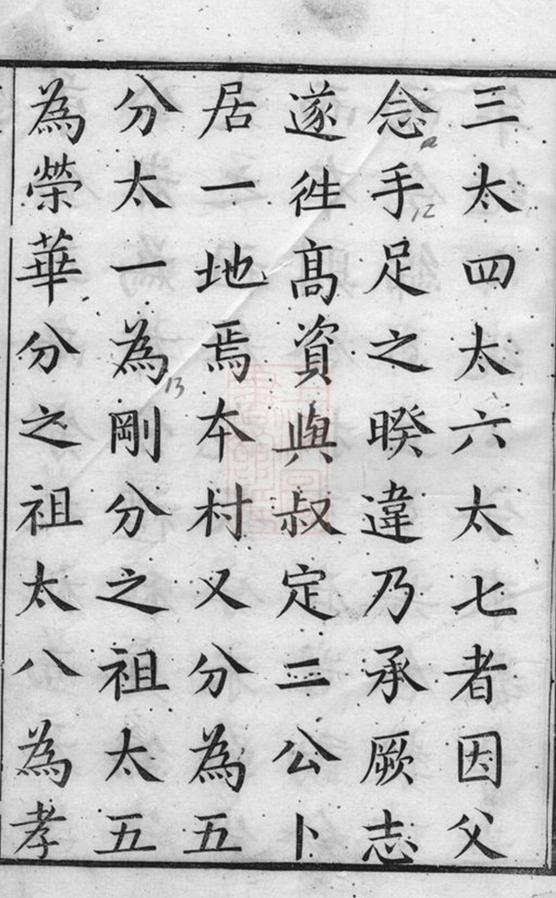 三太四太六太七者因父
念手足之暌違乃承厥志
遂徃高資與叔定二公卜
居一地焉本村又分為五
分太一為剛分之祖太五
為榮華分之祖太八為孝
12
13